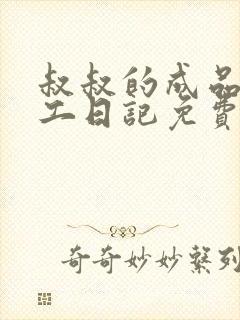 叔叔的成品
工日記免費
奇奇妙妙繫列